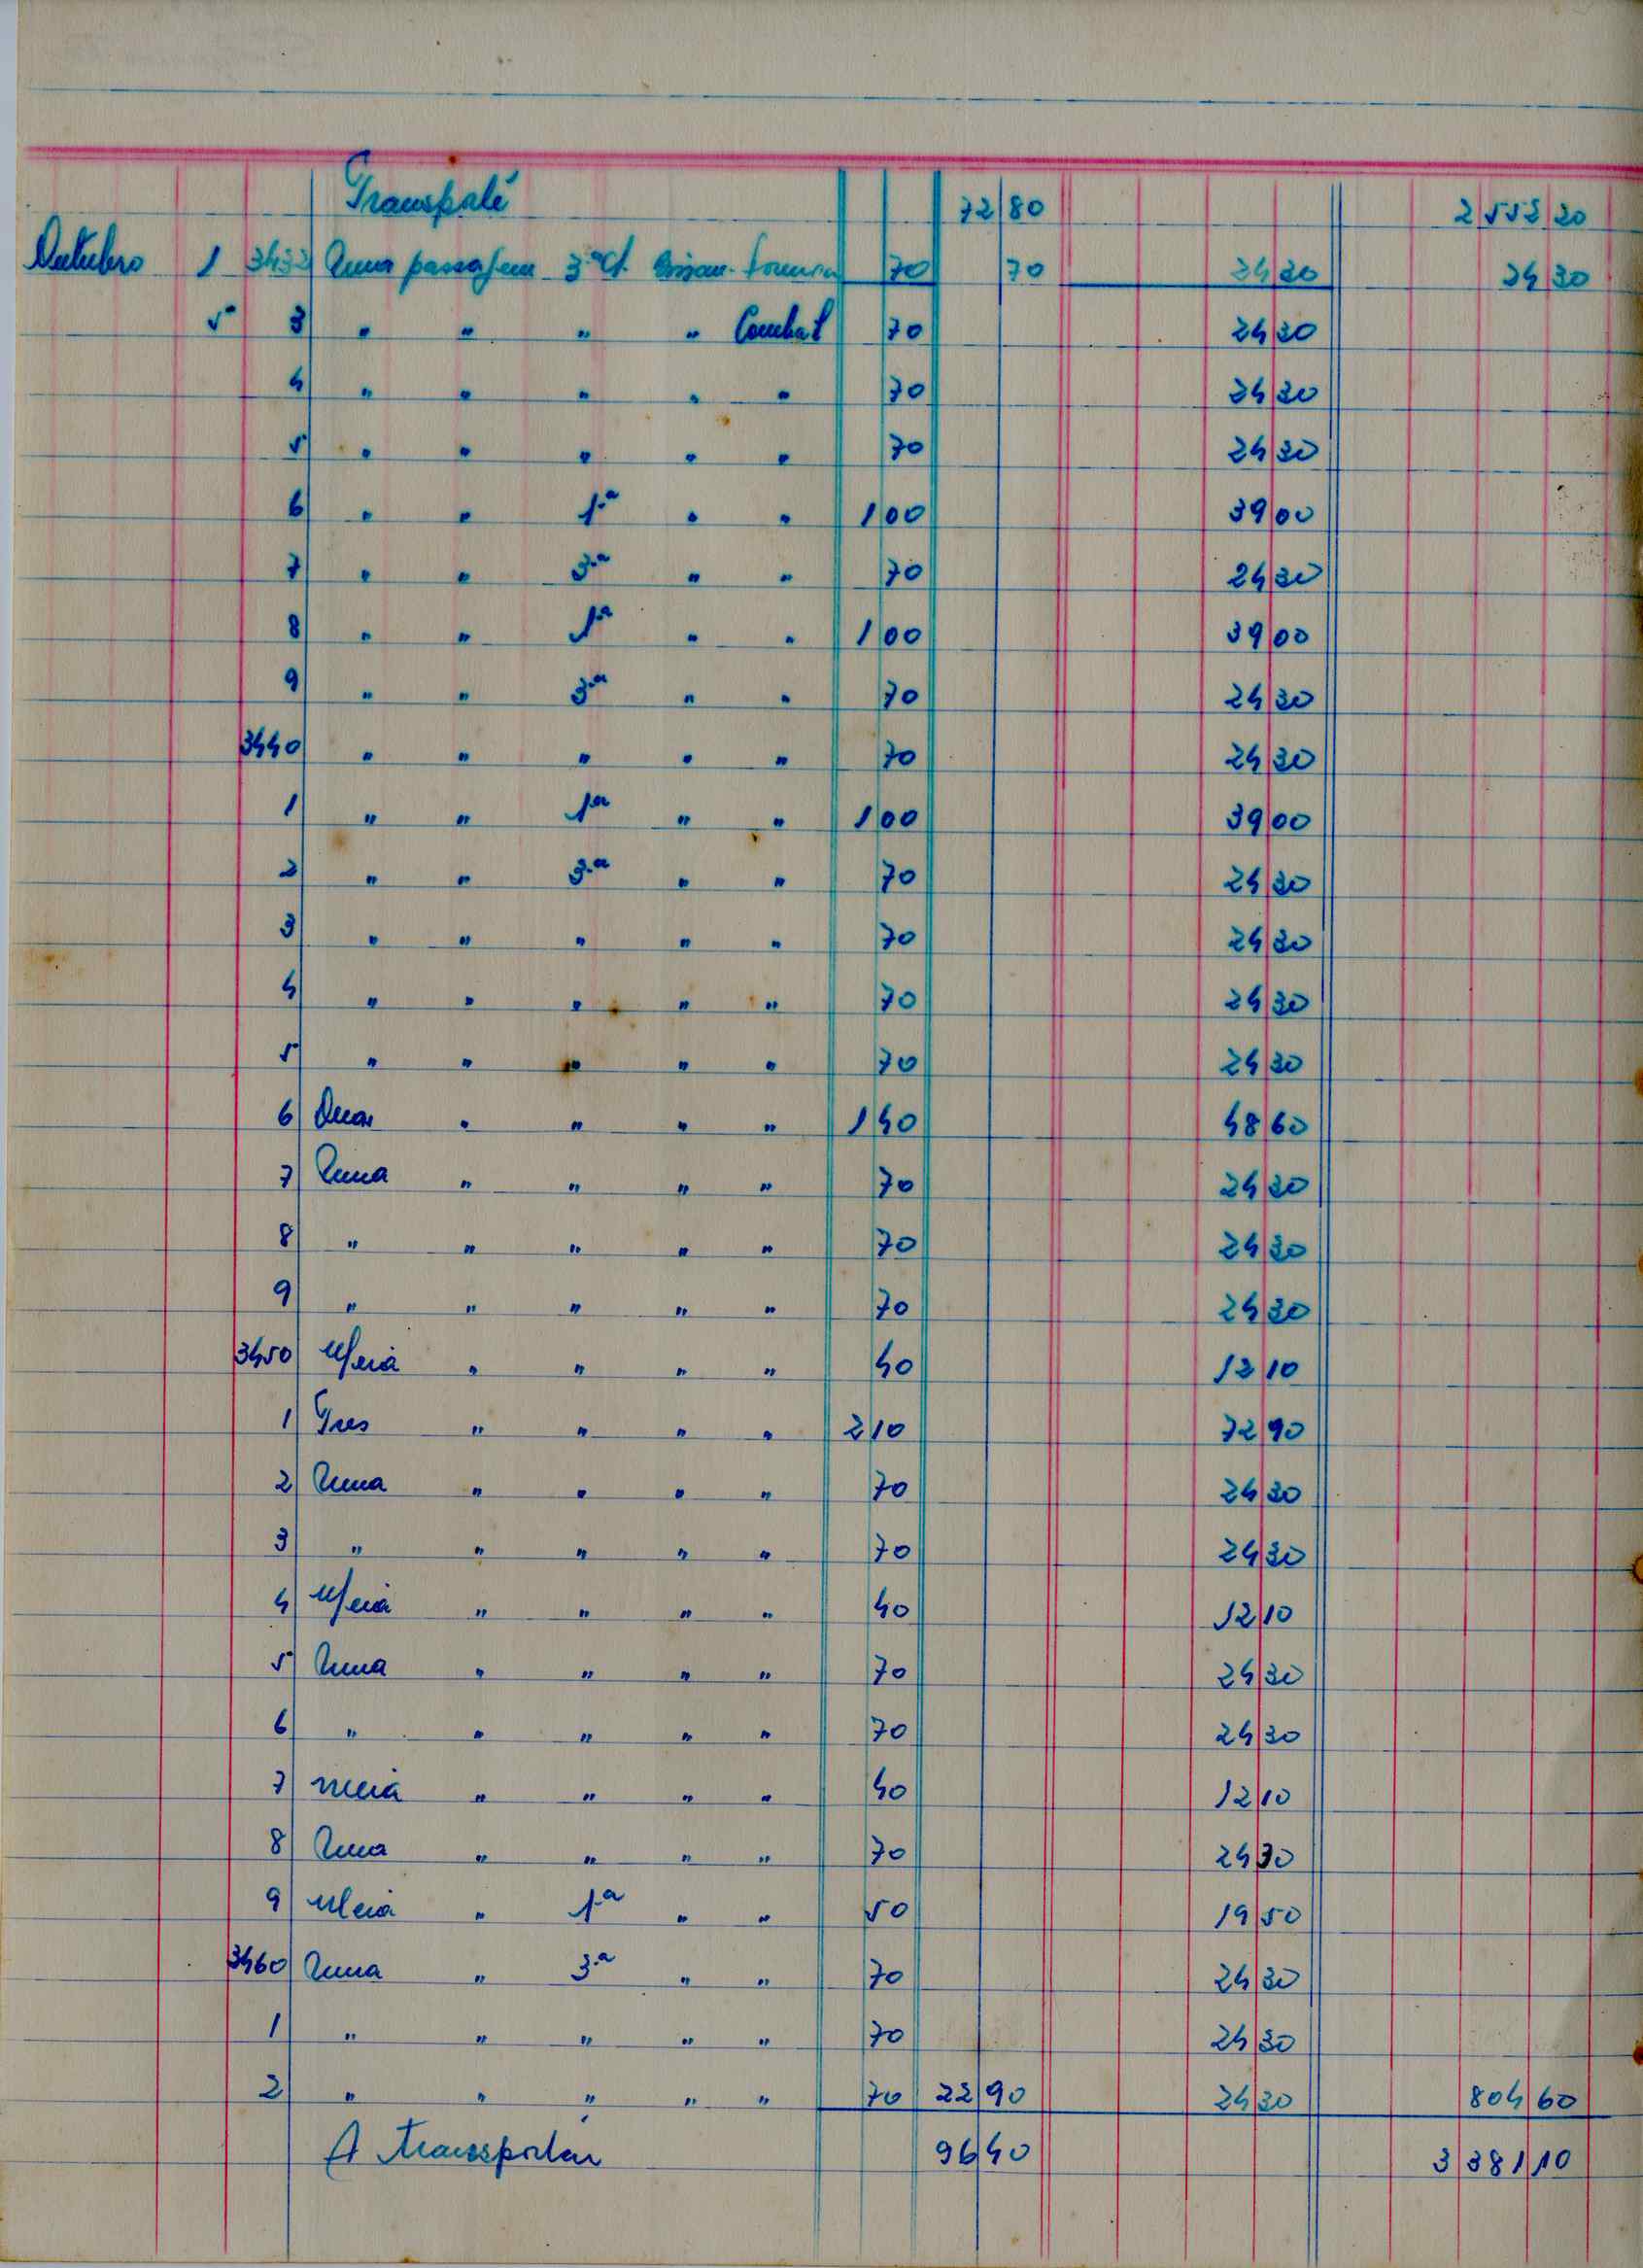 Transporte 72 80 2 552 20
Outubro 1 3432 Uma passagem 3.ª cl. Bissau- 70 70 24 30 24 30
5 3 " " " " 70 24 30
4 " " " " " 70 24 30
5 " " " " " 70 24 30
6 " " 1.ª " " 1 00 39 00
7 " " 3.ª " " 70 24 30
8 " " 1ª " " 1 00 39 00
9 " " 3.ª " " 70 24 30
3440 " " " " " 70 24 30
1 " " 1ª " " 1 00 39 00
2 " " 3.ª " " 70 24 30
3 " " " " " 70 24 30
4 " " " " " 70 24 30
5 " " " " " 70 24 30
6 Duas " " " " 1 40 48 60
7 Uma " " " " 70 24 30
8 " " " " " 70 24 30
9 " " " " " 70 24 30
3450 Meia " " " " 40 12 10
1 Tres " " " " 2 10 72 90
2 Uma " " " " 70 24 30
3 " " " " " 70 24 30
4 Meia " " " " 40 12 10
5 Uma " " " " 70 24 30
6 " " " " " 70 24 30
7 meia " " " " 40 12 10
8 Uma " " " " 70 24 30
9 Meia " 1.ª " " 50 19 50
3460 Uma " 3.ª " " 70 24 30
1 " " " " " 70 24 30
2 " " " " " 70 22 90 24 30 804 60
A transportar 96 40 3 381 10